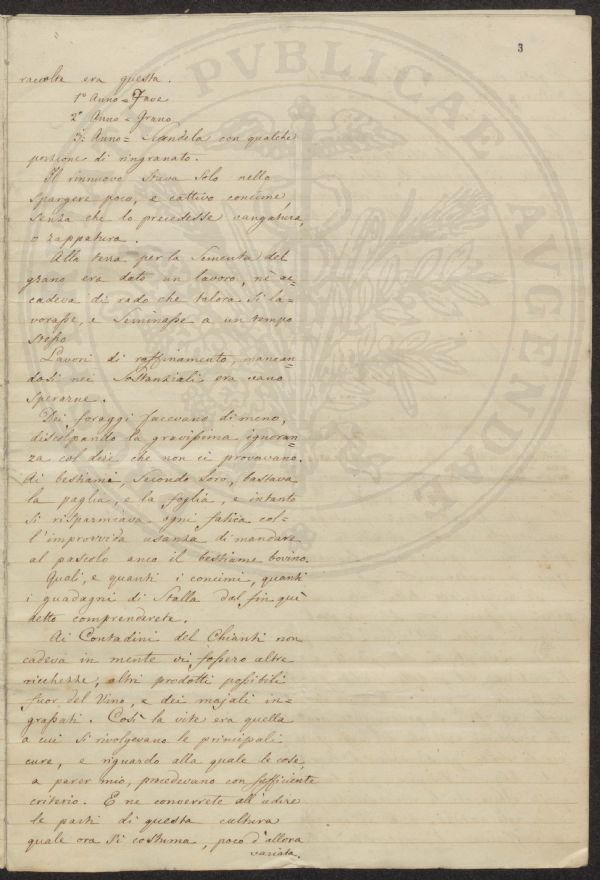 3
raccolte era questa.
1º Anno = Fave
2º Anno = Grano
3º Anno = Scandela con qualche
porzione di ringranato.
Il rinnuovo stava solo nello
spargere poco, e cattivo concime,
senza che lo precedesse vangatura,
o zappatura.
Alla terra per la Sementa del
grano era dato un lavoro, nè ac=
cadeva di rado che talora si la=
vorasse, e Seminasse a un tempo
stesso
Lavori di raffinamento, mancan=
dosi nei sostanziali era vano
sperarne.
Dei foraggi facevano dimeno,
discolpando la gravissima ignoran=
za col dire che non ci provavano.
Ai bestiami, secondo loro, bastava
la paglia, e la foglia, e intanto
si risparmiava ogni fatica col=
l'improvvida usanza di mandare
al pascolo anco il bestiame bovino.
Quali, e quanti i concimi, quanti
i guadagni di Stalla dal fin quì
detto comprenderete.
Ai Contadini del Chianti non
cadeva in mente vi fossero altre
ricchezze, altri prodotti possibili
fuor del Vino, e dei majali in=
grassati. Così la vite era quella
a cui si rivolgevano le principali
cure, e riguardo alla quale le cose,
a parer mio, procedevano con sufficiente
criterio. E ne converrete all'udire
le parti di questa cultura
quale ora si costuma, poco d'allora
variata.
PVBLICAE
AVGENDAE